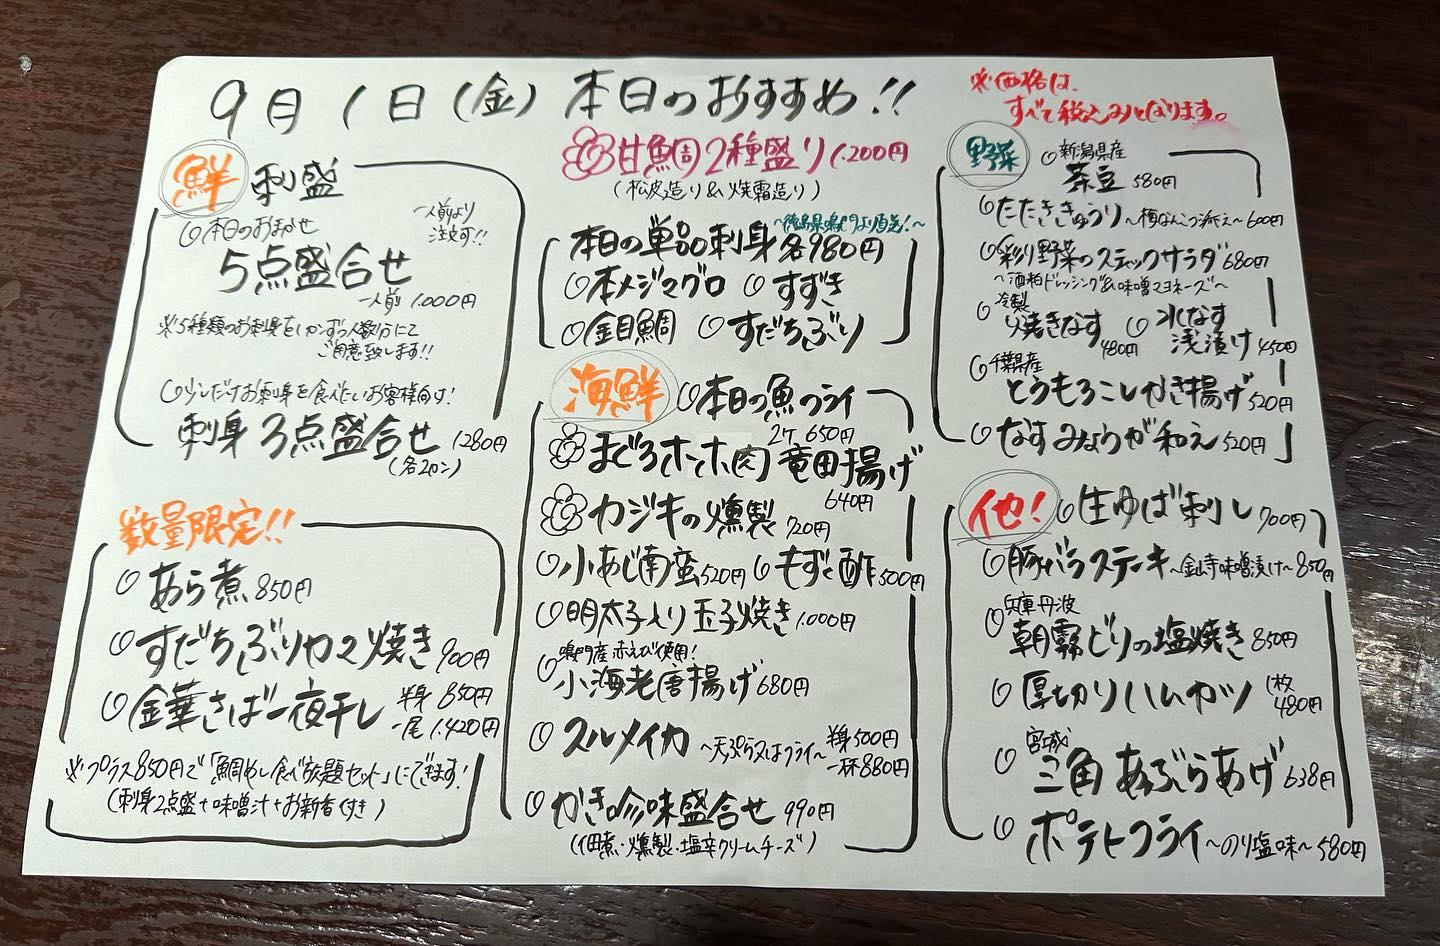 9月1日(金)本日のおすすめ!!
※価格は、
すべて税込みとなります。
鮮 刺盛
本日のおまかせ
一人前より
注文可!!
5点盛合せ
一人前 1,000円
※5種類のお刺身を1カンずつ人数分にて
ご用意致します!!
少しだけお刺身を食べたいお客様向け!
刺身3点盛合せ 1280円
(各2カン)
数量限定!!
あら煮 850円
すだちぶりカマ焼き 900円
金華さば一夜干し 半身 850円
一尾 1,420円
※プラス850円で「鯛めし食べ放題セット」にできます!
(刺身2点盛+味噌汁+お新香付き)
甘鯛2種盛り 1,200円
(松皮造り&焼霜造り)
~徳島県鳴門より直送!~
本日の単品刺身 各980円
本メジマグロ すずき
金目鯛 すだちぶり
海鮮 本日の魚フライ
2ケ 650円
まぐろホホ肉 竜田揚げ
640円
カジキの燻製 720円
小あじ南蛮 520円 もずく酢 500円
明太子入り玉子焼き 1,000円
鳴門産赤えび使用!
小海老唐揚げ 680円
スルメイカ ~天ぷら又はフライ~ 半身 500円
一杯 880円
かき珍味盛合せ 990円
(佃煮・燻製・塩辛クリームチーズ)
野菜 新潟県産
茶豆 580円
たたききゅうり ~梅なんこつ添え~ 600円
彩り野菜のスティックサラダ 680円
~酒粕ドレッシング&味噌マヨネーズ~
冷製
焼きなす 480円 水なす
浅漬け 450円
千葉県産
とうもろこしかき揚げ 520円
なすみょうが和え 520円
他! 生ゆば刺し 700円
豚バラステーキ ~金山寺味噌漬け~ 850円
兵庫丹波
朝霧どりの塩焼き 850円
厚切りハムカツ 1枚
480円
宮城
三角あぶらあげ 638円
ポテトフライ ~のり塩味~ 580円